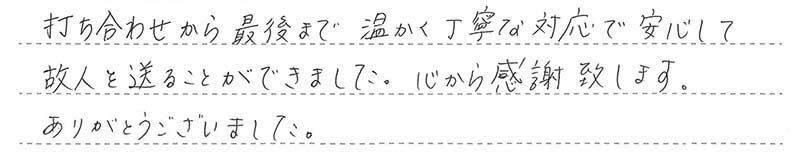 打ち合わせから最後まで温かく丁寧な対応で安心して
故人を送ることができました。心から感謝致します。
ありがとうございました。